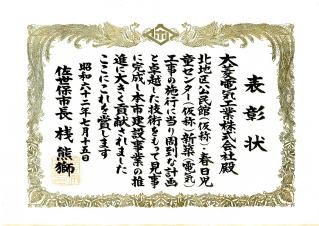 表彰状
太菱電気工業株式会社殿
北地区公民館(仮称)・春日児
童センター(仮称)新築(電気)
工事の施行に当り周到な計画
と卓越した技術をもって見事
に完成し本市建設事業の推
進に大きく貢献されました
ここにこれを賞します
昭和六十二年七月十五日
佐世保市長 桟 熊獅